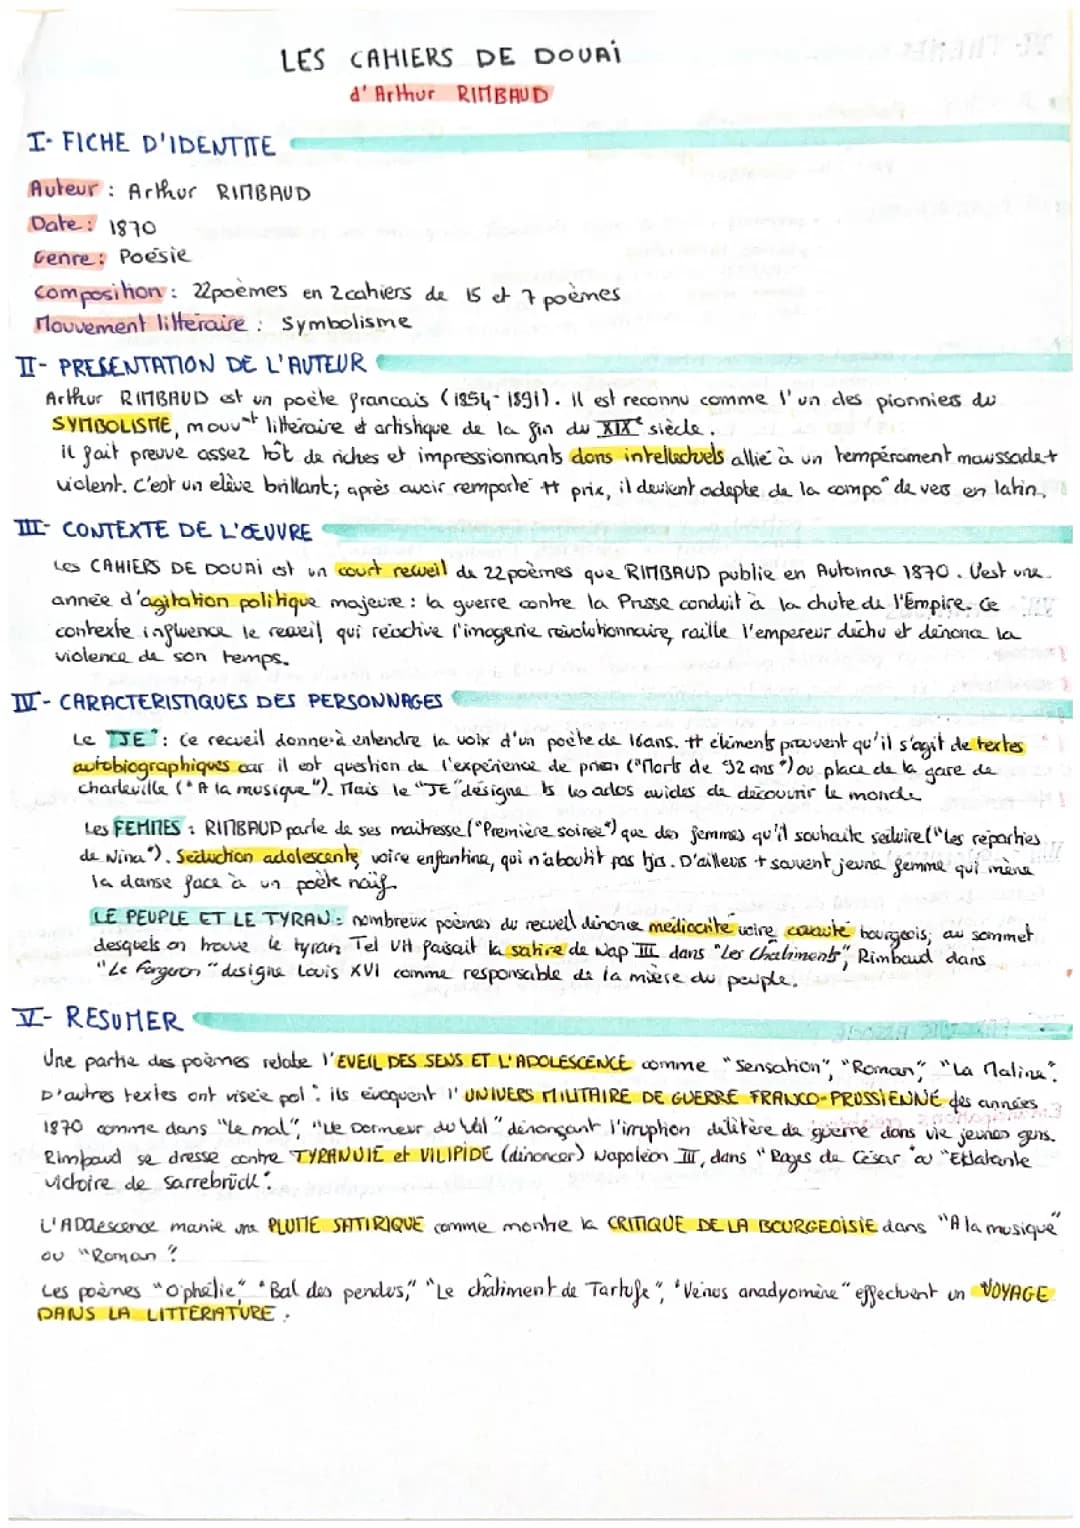 LES CAHIERS DE DOUAI
d'Arthur RIMBAUD
I- FICHE D'IDENTITE
Auteur : Arthur RIMBAUD
Date : 1870
Genre : Poésie
Composition : 22 poèmes en 2 cahiers de 15 et 7 poèmes
Mouvement littéraire : Symbolisme
II- PRESENTATION DE L'AUTEUR
Arthur RIMBAUD est un poète francais (1854-1891). Il est reconnu comme l'un des pionniers du
SYMBOLISME, mouvnt littéraire et artistique de la fin du XIXe siècle.
il fait preuve assez tôt de riches et impressionnants dons intellectuels allié à un tempérament maussade +
violent. C'est un elève brillant; après avoir remporté tt prix, il devient adepte de la compo° de vers en latin.
III- CONTEXTE DE L'ŒUVRE
Les CAHIERS DE DOUAI est un court recueil de 22 poèmes que RIMBAUD publie en Automne 1870. C'est une
année d'agitation politique majeure : la guerre contre la Prusse conduit à la chute de l'Empire. Ce
contexte influence le recueil qui réactive l'imagerie révolutionnaire, raille l'empereur déchu et dénonce la
violence de son temps.
IV- CARACTERISTIQUES DES PERSONNAGES
Le "JE" : Ce recueil donne à entendre la voix d'un poète de 16ans. tt éléments prouvent qu'il s'agit de textes
autobiographiques car il est question de l'expérience de prison ("Morts de 92 ans") ou place de la gare de
charleville ("A la musique"). Mais le "JE" désigne ts les ados avides de découvrir le monde
Les FEMMES : RIMBAUD parle de ses maitresse ("Première soirée") que des femmes qu'il souhaite séduire ("Les reparties
de Nina"). Séduction adolescente, voire enfantine, qui n'aboutit pas tjrs. D'ailleurs + souvent jeune femme qui mène
la danse face à un poète naïf
LE PEUPLE ET LE TYRAN : nombreux poèmes du recueil dénonce médiocrité voire cruauté bourgeois; au sommet
desquels on trouve le tyran Tel VH faisait la satire de Nap III dans "Les Châtiments", Rimbaud dans
"Le Forgeron" designe Louis XVI comme responsable de la misère du peuple.
V- RESUMER
Une partie des poèmes relate l'EVEIL DES SENS ET L'ADOLESCENCE comme "Sensation", "Roman", "La Maline".
D'autres textes ont visée pol : ils évoquent l'UNIVERS MILITAIRE DE GUERRE FRANCO-PRUSSIENNE des années
1870 comme dans "le mal", "Le Dormeur du Val" dénonçant l'irruption délétère de guerre dans vie jeunes gens.
Rimbaud se dresse contre TYRANNIE et VILIPIDE (dénoncer) Napoléon III, dans "Rages de César" ou "Eklatante
victoire de Sarrebrück".
L'ADOlescence manie une PLUME SATIRIQUE comme montre la CRITIQUE DE LA BOURGEOISIE dans "A la musique"
ou "Roman"
Les poèmes "Ophélie", "Bal des pendus", "Le châtiment de Tartufe", "Vénus anadyomène" effectuent un VOYAGE
DANS LA LITTERATURE.